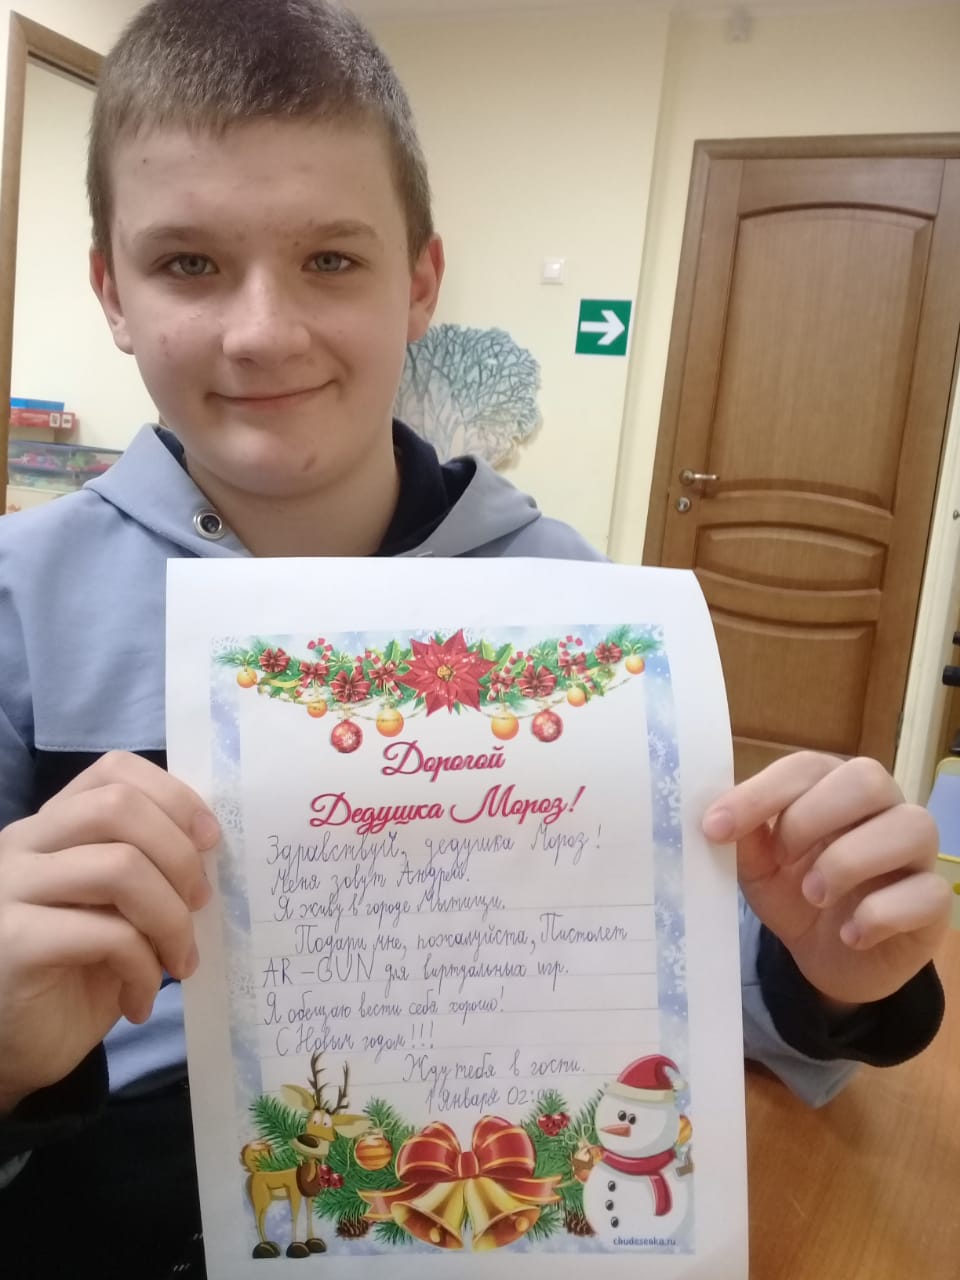 Дорогой
Дедушка Мороз!
Здравствуй, дедушка Мороз!
Меня зовут Андрей.
Я живу в городе Мытищи.
Подари мне, пожалуйста, Пистолет
AR-GUN для виртуальных игр.
Я обещаю вести себя хорошо!
С Новым годом!!!
Жду тебя в гости.
1 Января
chudesenka.ru